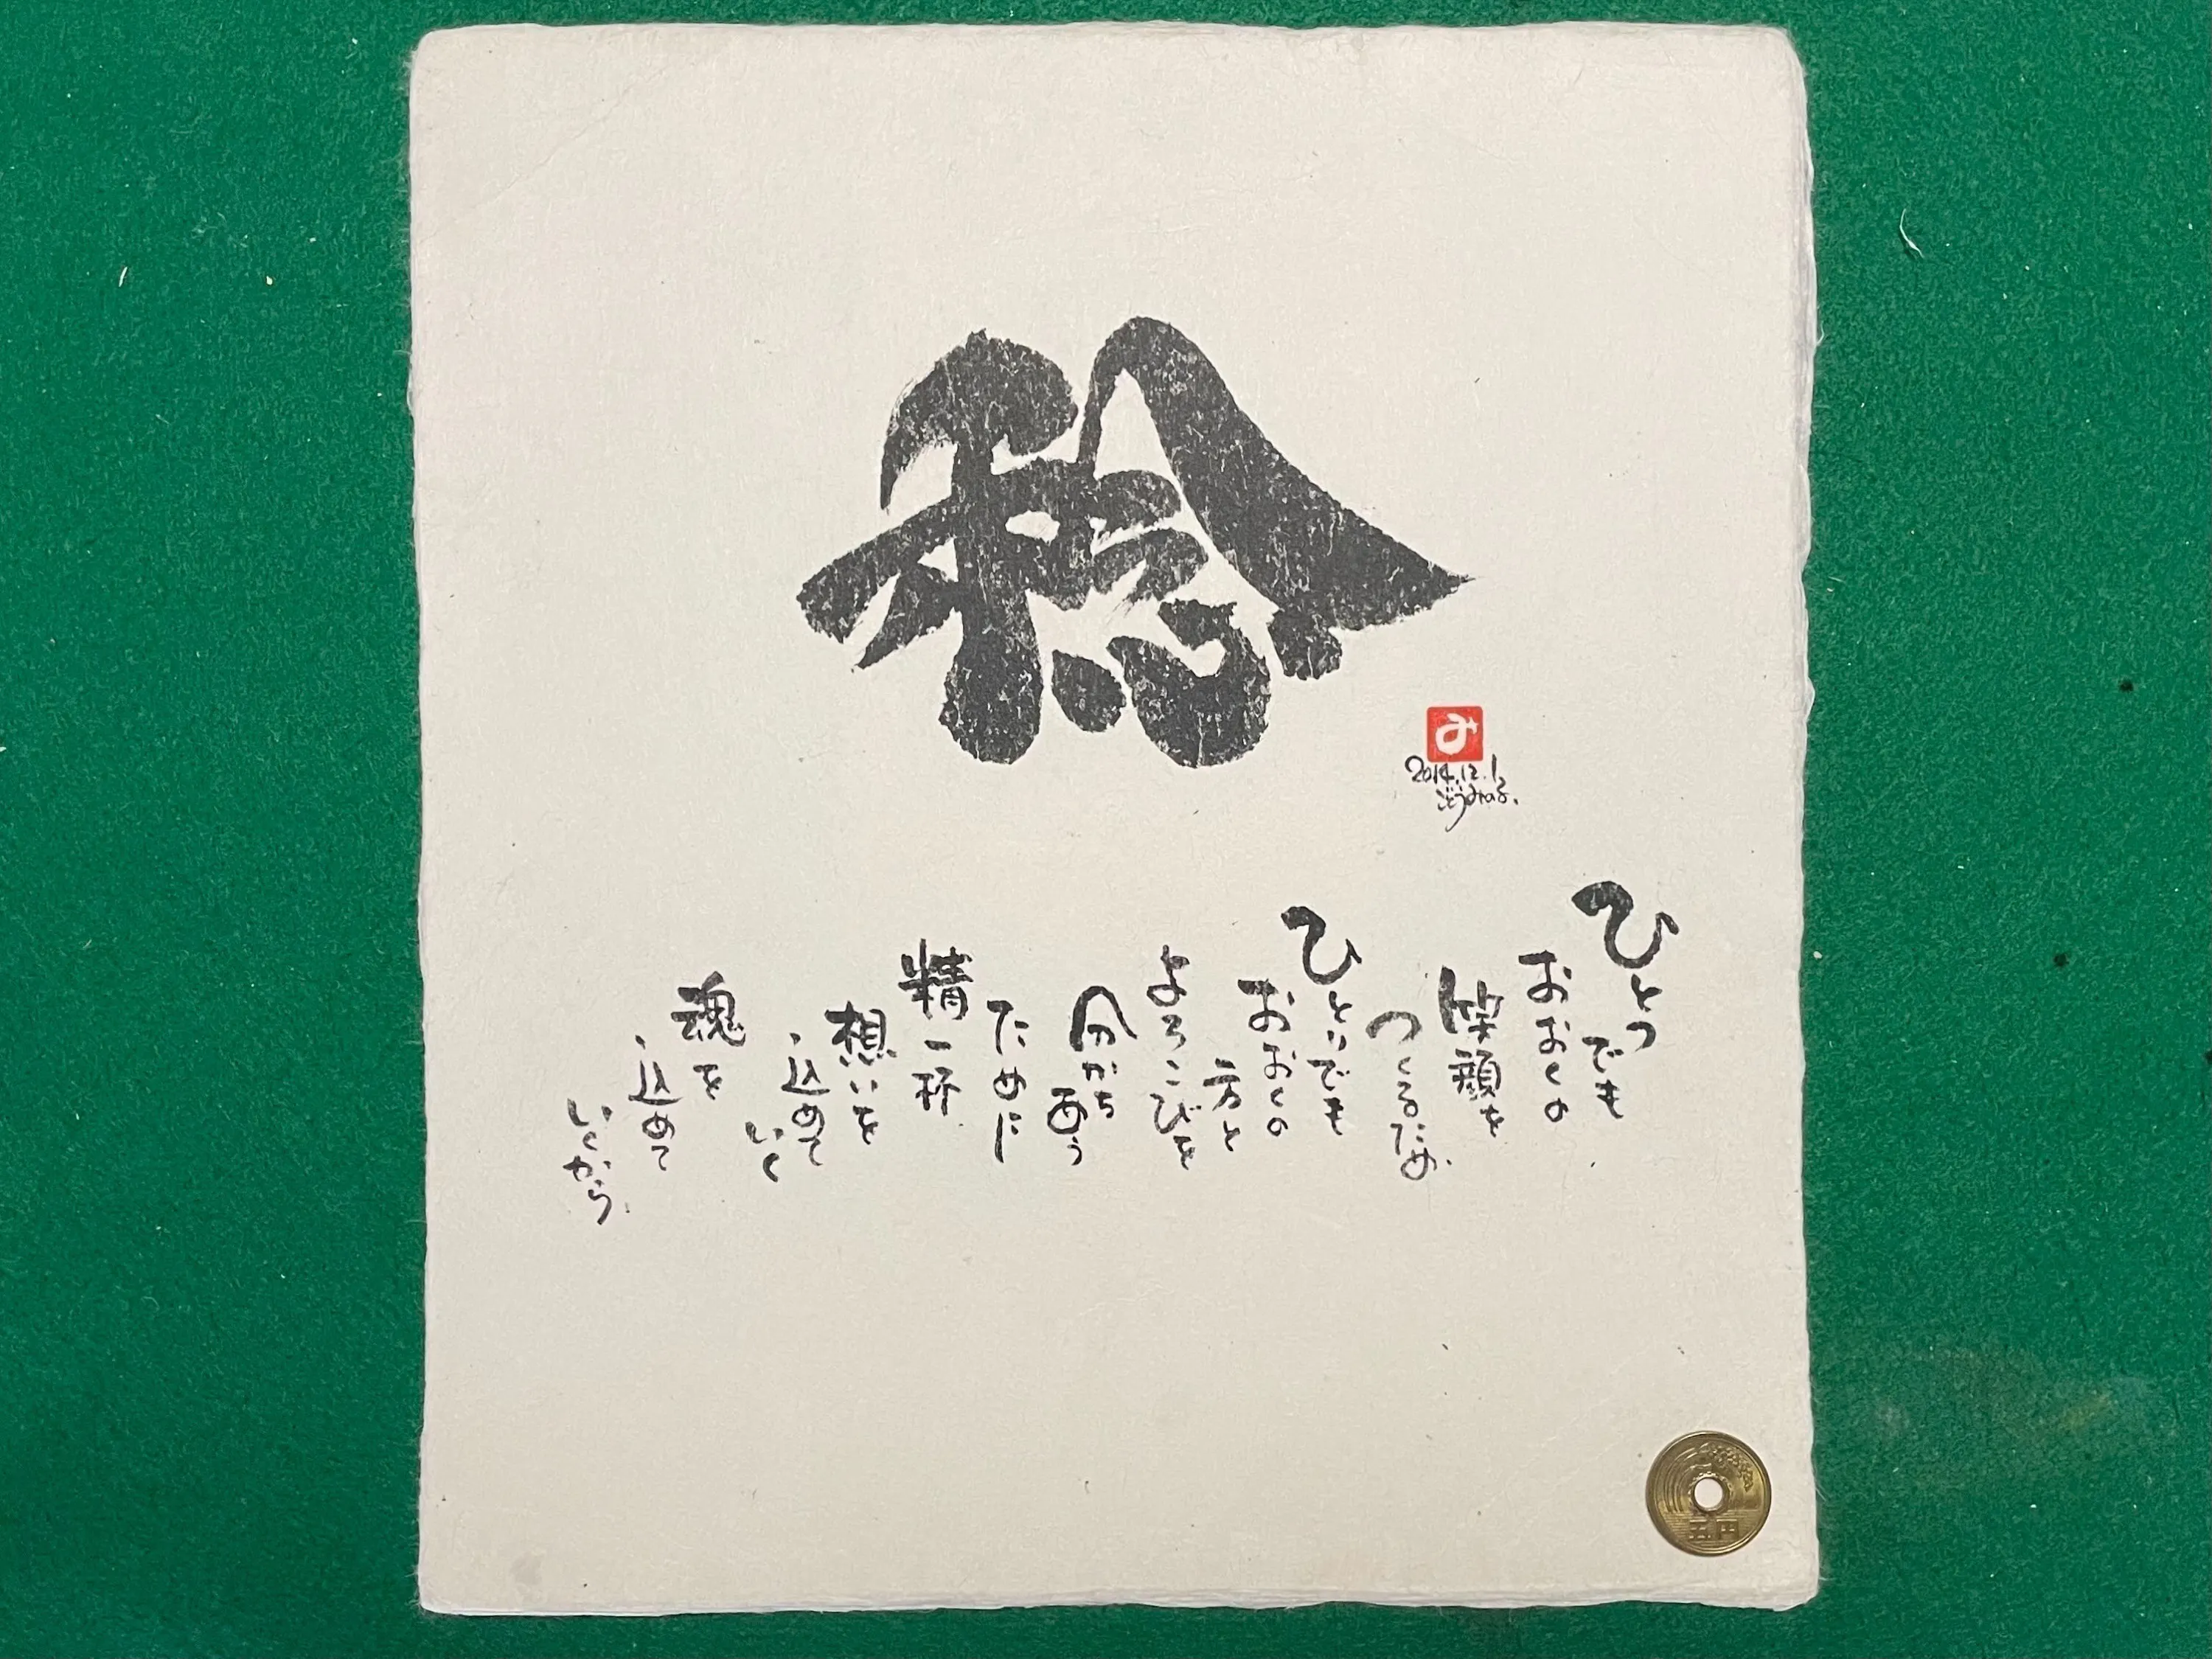 稔
み
2014.12.1
ごとうみのる.
ひとつ
でも
おおくの
笑顔を
つくるため
ひとりでも
おおくの
方と
よろこびを
分かち
あう
ために
精一杯
想いを
込めて
いく
魂を
込めて
いくから
五円